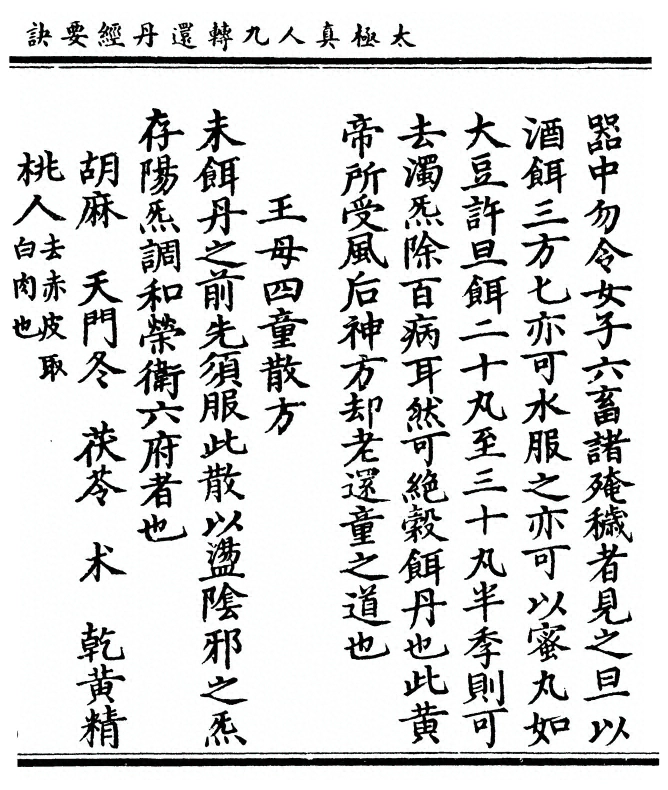 太極真人九轉還丹經要訣
器中勿令女子六畜諸殗穢者見之旦以
酒餌三方七亦可水服之亦可以蜜丸如
大豆許旦餌二十丸至三十丸半季則可
去濁炁除百病耳然可絶穀餌丹也此黄
帝所受風后神方却老還童之道也
王母四童散方
未餌丹之前先須服此散以盪陰邪之炁
存陽炁調和榮衛六府者也
胡麻 天門冬 茯苓 术 乾黄精
桃人去赤皮取
白肉也